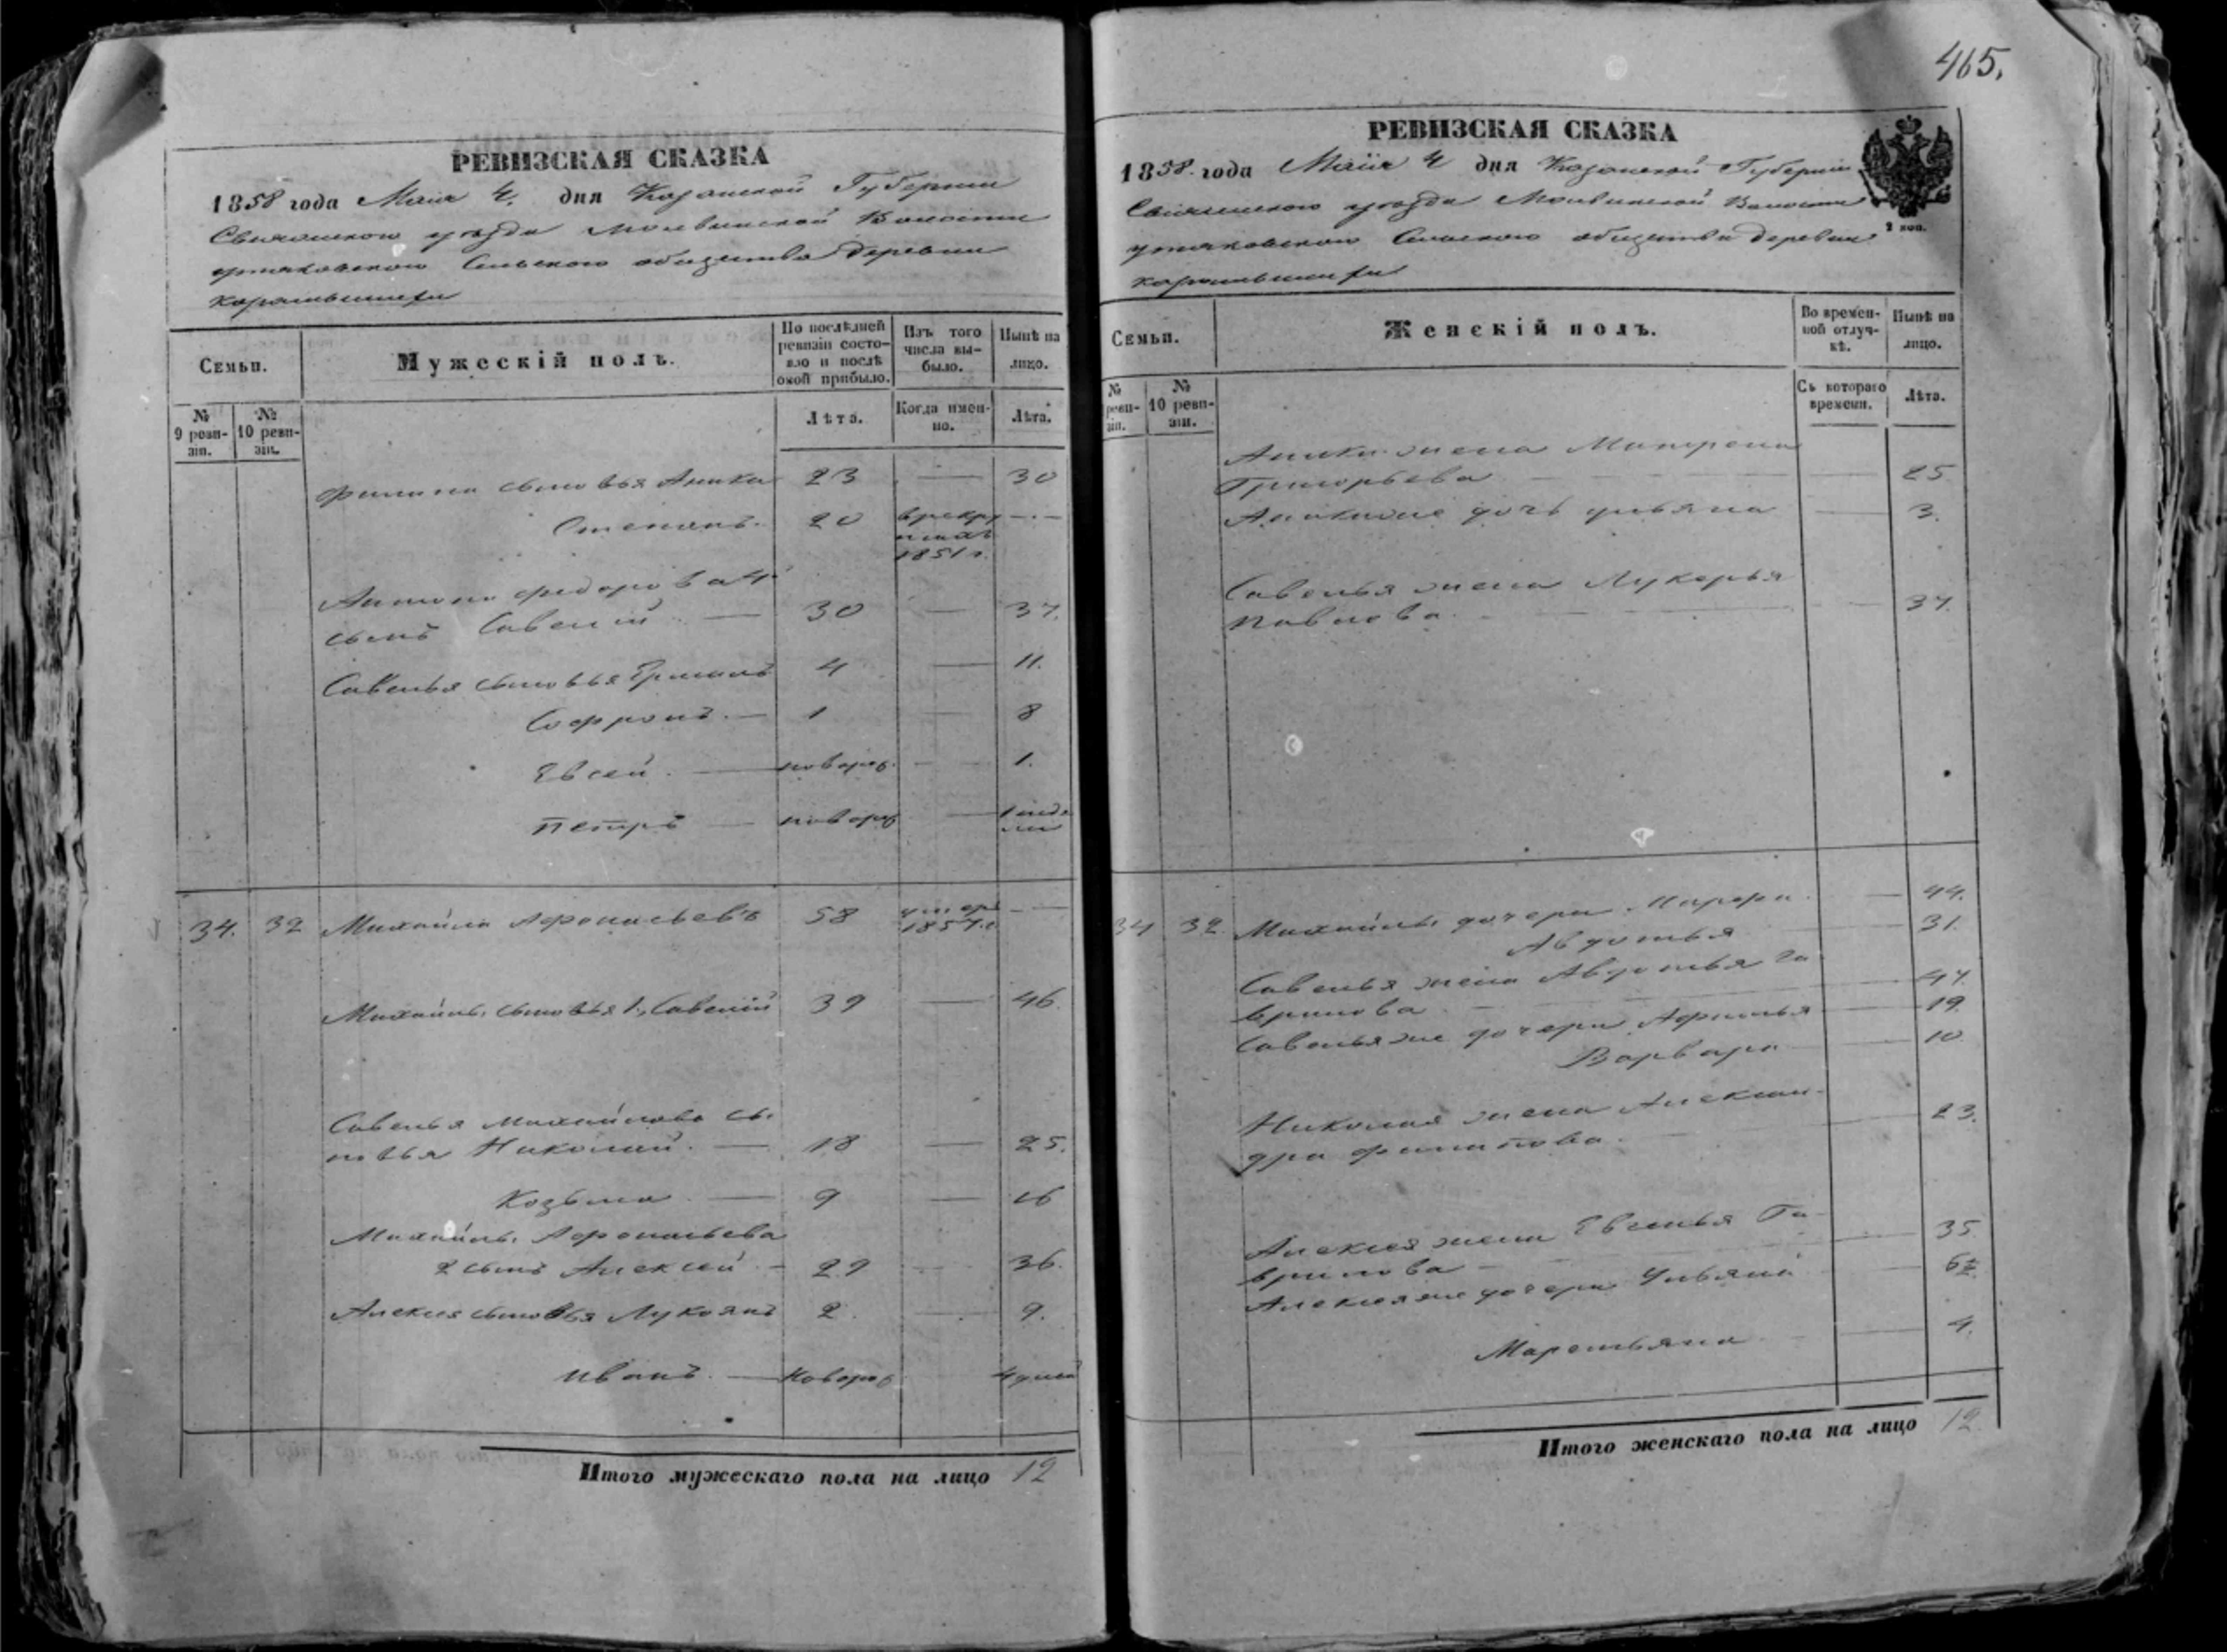 РЕВИЗСКАЯ СКАЗКА
1858 года Маія 4. дня Казанской Губернии
Свіяжскаго уѣзда Молвинской Волости
Сельскаго общества деревни
Семьи.
Мужескій полъ.
По послѣдней ревизіи состояло и послѣ оной прибыло.
Изъ того числа выбыло.
Нынѣ на лицо.
№ 9 ревизіи.
№ 10 ревизіи.
Лѣта.
Когда именно.
Лѣта.
Филипа сыновья Аника 23 — 30
Степанъ. 20 в рекрутахъ 1851 г. —
Антона Федорова 4й
сынъ Савелій. — 30 — 37.
Савелья сыновья Ермилъ 4 — 11.
Софронъ. — 1 — 8
Евсей. — новорож. — 1.
Петръ — новорож — 1 недѣли
34. 32 Михайла Афонасьевъ 58 умеръ 1857. г —
Михайлы сыновья 1., Савелій 39 — 46.
Савелья Михайлова сы
новья Николай. — 18 — 25.
Козьма. — 9 — 16
Михайлы Афонасьева
2 сынъ Алексѣй. — 29 — 36.
Алексея сыновья Лукоянъ 2. — 9.
Иванъ. — Новорож 4 дней
Итого мужескаго пола на лицо 12
465.
РЕВИЗСКАЯ СКАЗКА
1858. года Маія 4 дня Казанской Губерніи
Свіяжскаго уѣзда Молвинской Волости
Сельскаго общества деревни
2 коп.
Семьи.
Женскій полъ.
Во временной отлучкѣ.
Нынѣ на лицо.
№ реви-зіи.
№ 10 реви-зіи.
Съ котораго времени.
Лѣта.
Аники жена Матрена
Григорьева — — 25
Аники же дочь Ульяна — 3.
Савелья жена Лукерья
Павлова. — — 37.
34 32. Михайлы дочери. Марфа. — 44.
Авдотья — 31.
Савелья жена Авдотья Га
врилова. — — 47.
Савелья же дочери Афимья — 19.
Варвара — 10
Николая жена Алексан-
дра Филипова. — — 23.
Алексея жена Евгенья Га-
врилова — — 35
Алексея же дочери Ульяна — 6½
Маремьяна — 4.
Итого женскаго пола на лицо 12